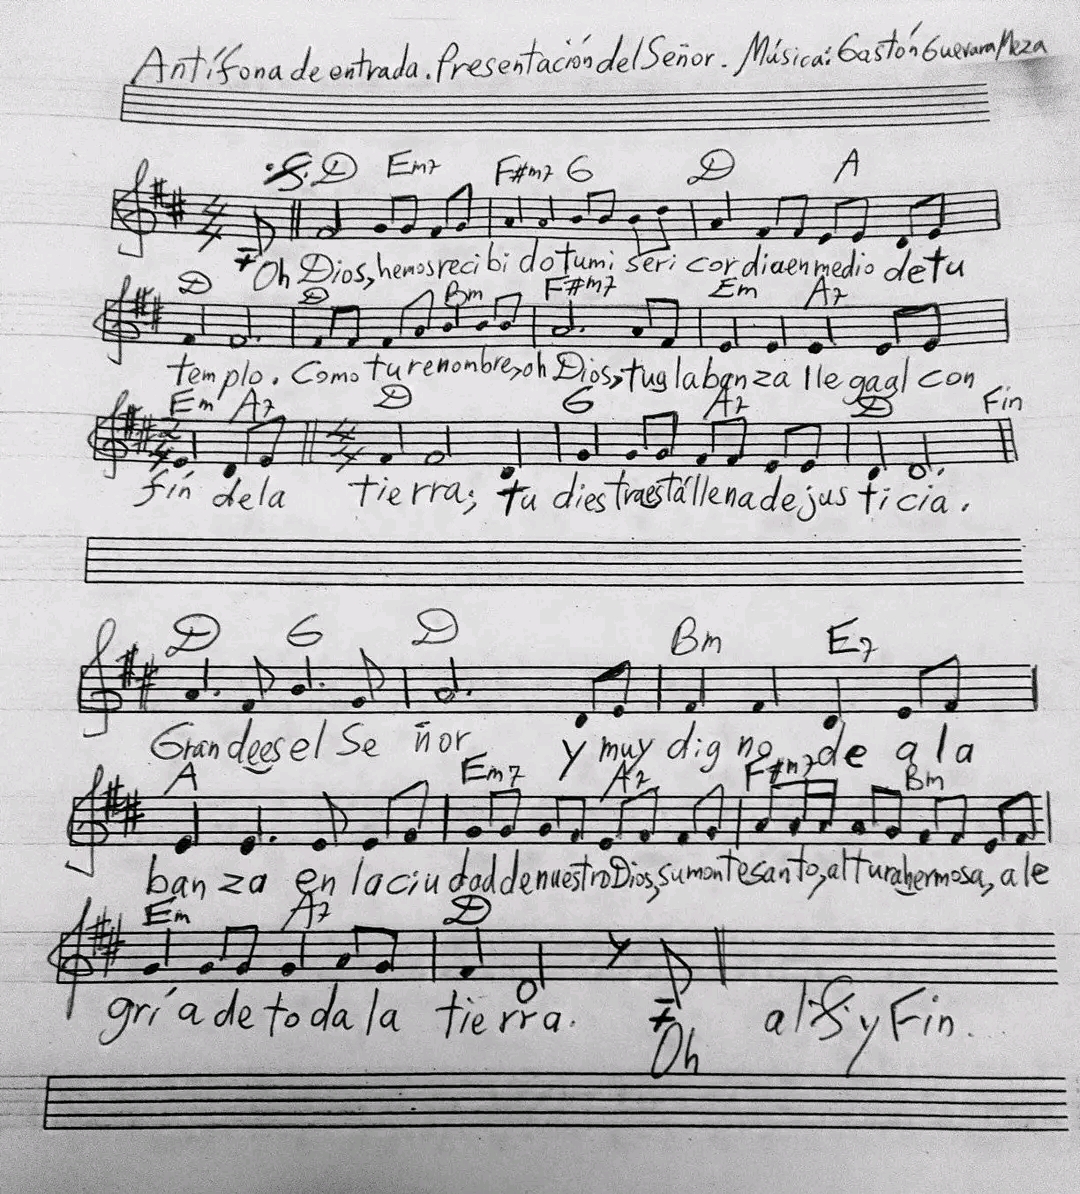 Antífona de entrada. Presentación del Señor. Música: Gastón Guevara Meza
D Em7 F#m7 G D A
4 4
Oh Dios, hemos recibido tu misericordia en medio de tu
D D Bm F#m7 Em A7
templo. Como tu renombre, oh Dios, tu alabanza llega al con
Em A7 D G A7 D Fin
2 4 4 4
fín de la tierra; tu diestra está llena de justicia.
D G D Bm E7
Grande es el Señor y muy digno de ala
A Em7 A7 F#m7 Bm
banza en la ciudad de nuestro Dios, su monte santo, altura hermosa, ale
Em A7 D
gría de toda la tierra. Oh al y Fin.